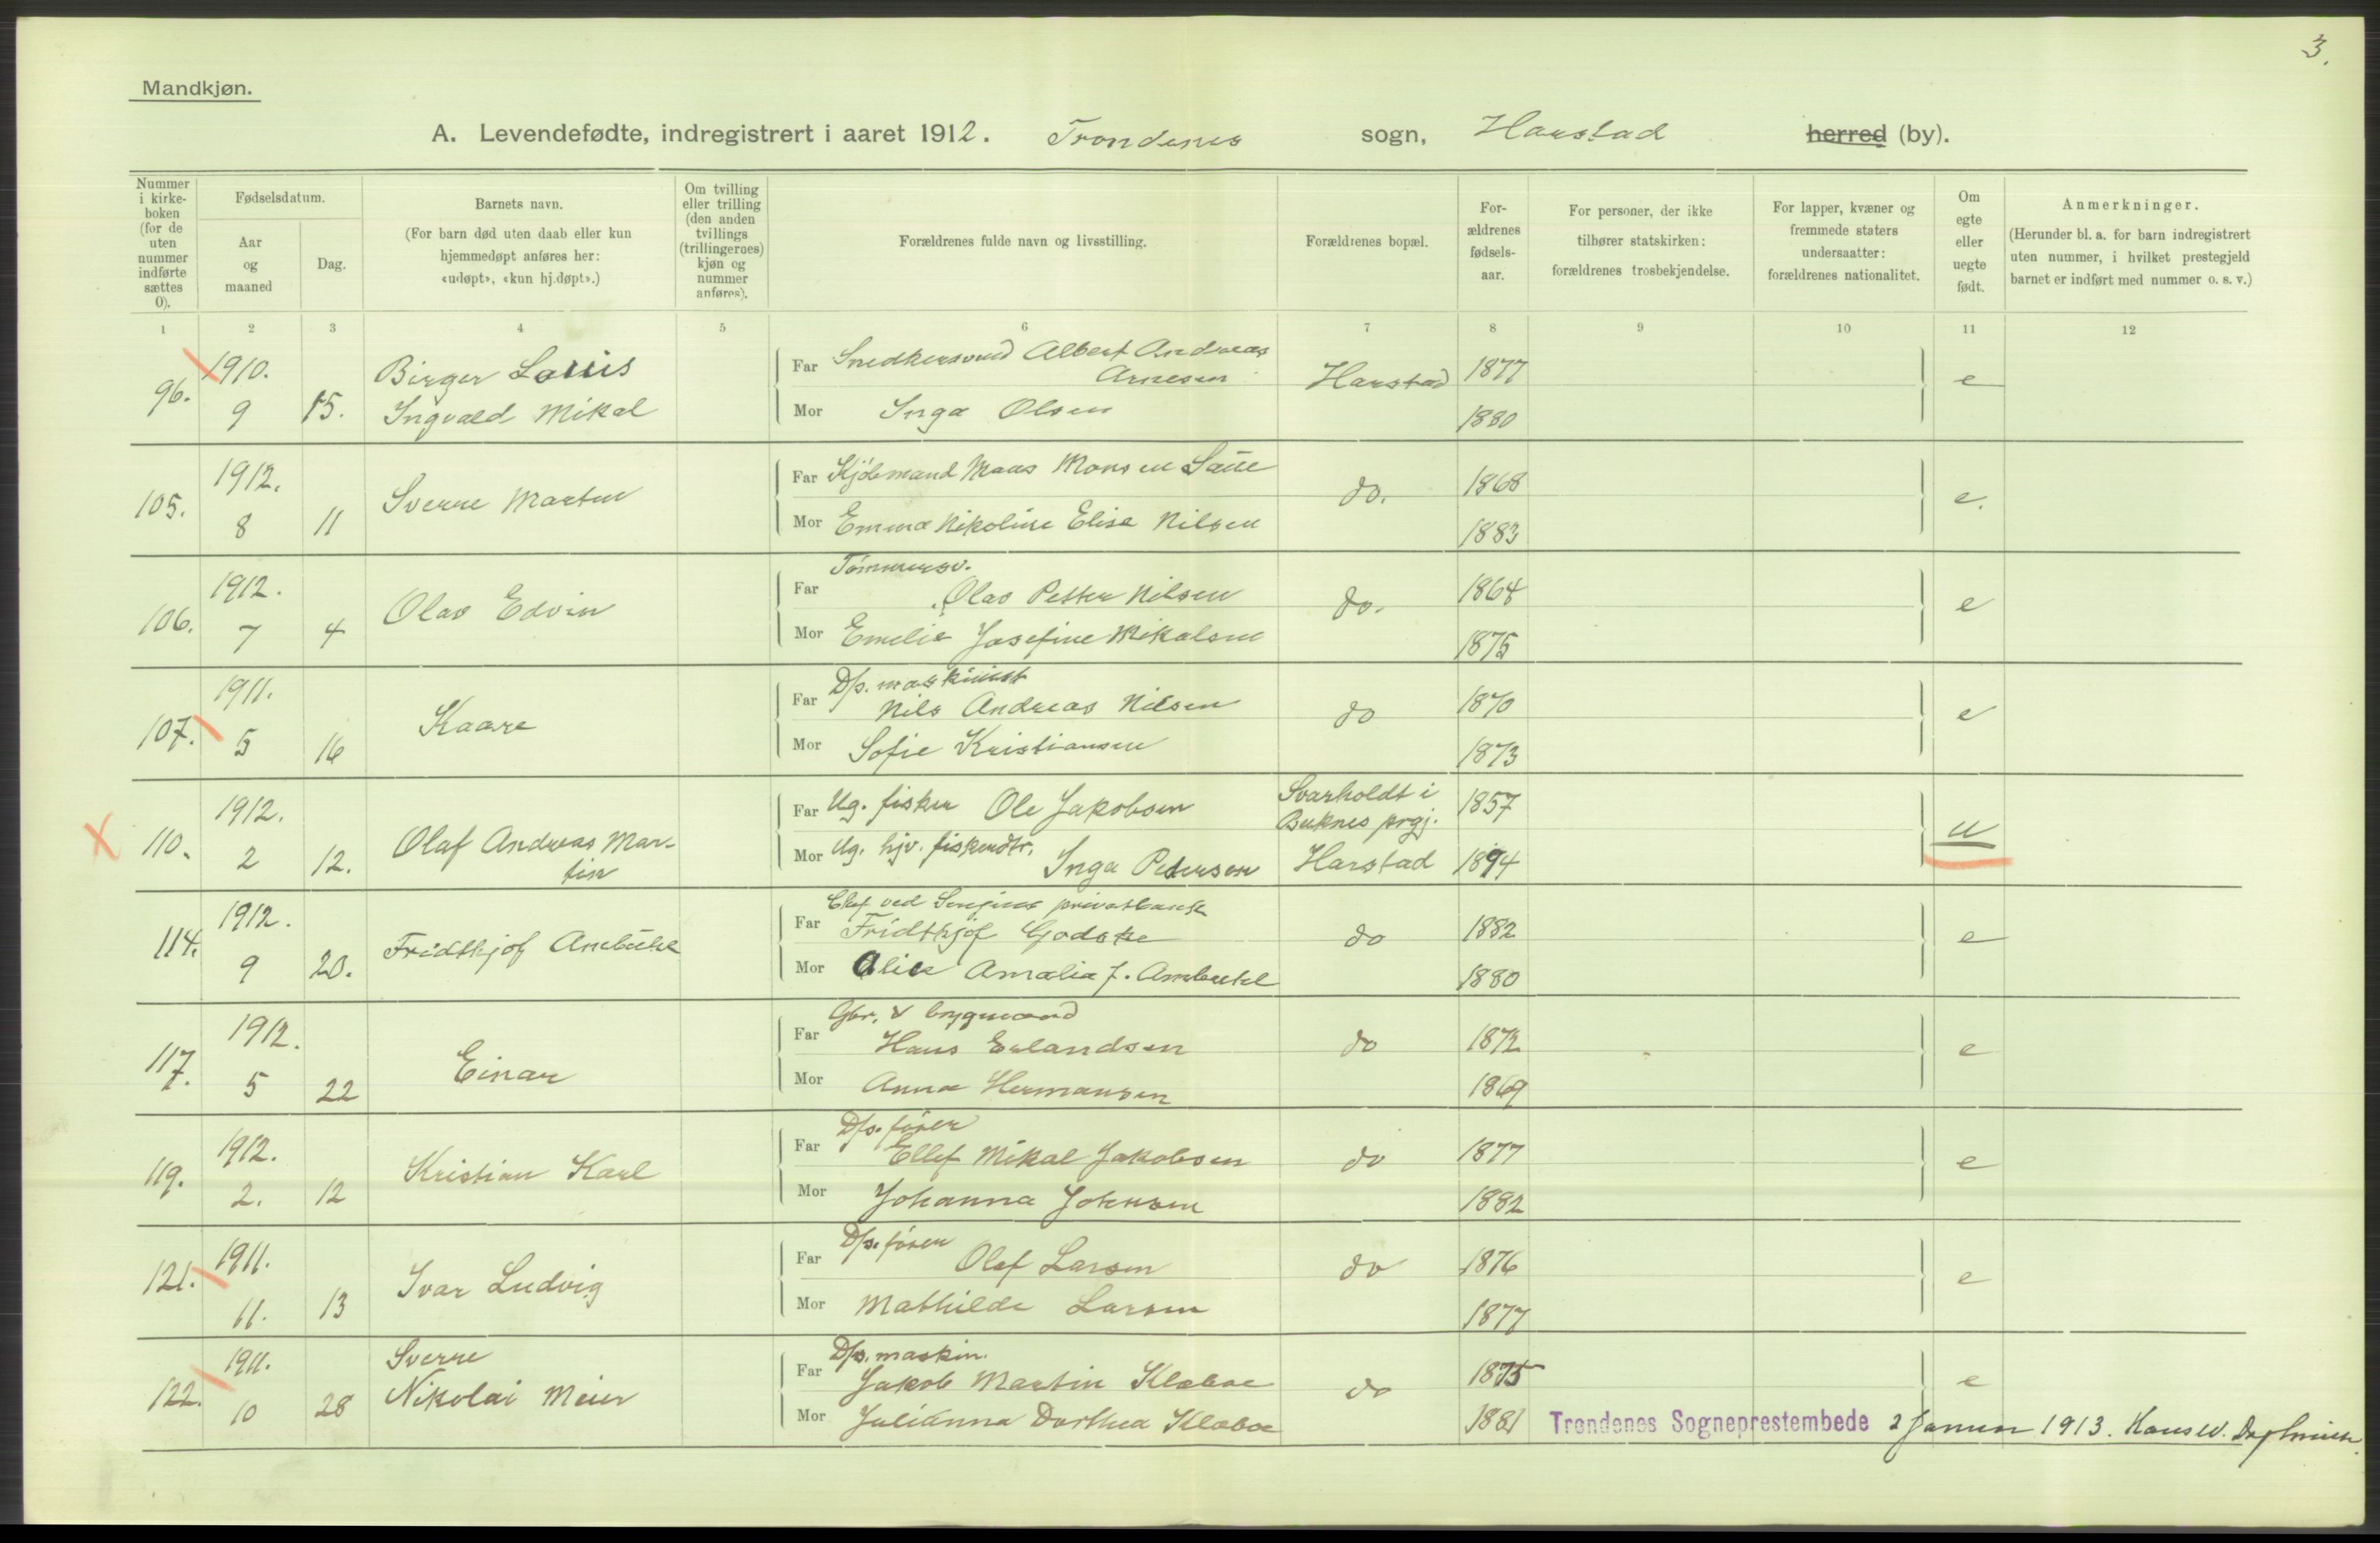 3.
Mandkjøn.
A. Levendefødte, indregistrert i aaret 1912. Trondenes sogn, Harstad herred (by).
Nummer i kirke-boken (for de uten nummer indførte sættes 0).
Fødselsdatum.
Aar og maaned
Dag.
Barnets navn.
(For barn død uten daab eller kun hjemmedøpt anføres her: «udøpt», «kun hj.døpt».)
Om tvilling eller trilling (den anden tvillings (trillingernes) kjøn og nummer anføres).
Forældrenes fulde navn og livsstilling.
Forældrenes bopæl.
For-ældrenes fødsels-aar.
For personer, der ikke tilhører statskirken: forældrenes trosbekjendelse.
For lapper, kvæner og fremmede staters undersaatter: forældrenes nationalitet.
Om egte eller uegte født.
Anmerkninger.
(Herunder bl. a. for barn indregistrert uten nummer, i hvilket prestegjeld barnet er indført med nummer o. s. v.)
1 2 3 4 5 6 7 8 9 10 11 12
96. 1910. 9 15. Birger Louis Ingvald Mikal
Far Snedkersvend Albert Andreas Arnesen Harstad 1877 e
Mor Inga Olsen 1880
105. 1912. 8 11 Sverre Martin
Far Kjøbmand Mons Monsen Saue do. 1868 e.
Mor Emma Nikoline Elise Nilsen 1883
106. 1912. 7 4 Olav Edvin
Far Tømmersv. Olav Petter Nilsen do. 1864 e
Mor Emelie Josefine Mikalsen 1875
107. 1911. 5 16 Kaare
Far D/s. maskinist Nils Andreas Nilsen do 1870 e
Mor Sofie Kristiansen 1873
X 110. 1912. 2 12. Olaf Andreas Mar-tin
Far Ug. fisker Ole Jakobsen Svarholdt i Buknes prgj. 1857 u
Mor Ug. hjv. fiskerdtr. Inga Pedersen Harstad 1894
114. 1912. 9 20. Fridthjof Ambütel
Far Chef ved Senjens privatbank Fridthjof Godske do 1882 e
Mor Alice Amalia J. Ambutel 1880
117. 1912. 5 22 Einar
Far Gbr. & bygmand Hans Erlandsen do 1872 e
Mor Anna Hermansen 1869
119. 1912. 2. 12 Kristian Karl
Far D/s. fører Ellef Mikal Jakobsen do 1877 e
Mor Johanna Johnsen 1882
121. 1911. 11. 13 Ivar Ludvig
Far D/s. fører Olaf Larsen do 1876 e
Mor Mathilde Larsen 1877
122. 1911. 10 28 Sverre Nikolai Meier
Far D/s. maskin. Jakob Martin Klæboe do 1875 e
Mor Julianna Dorthea Klæboe 1881
Trondenes Sogneprestembede 2 Januar 1913. Hans W.